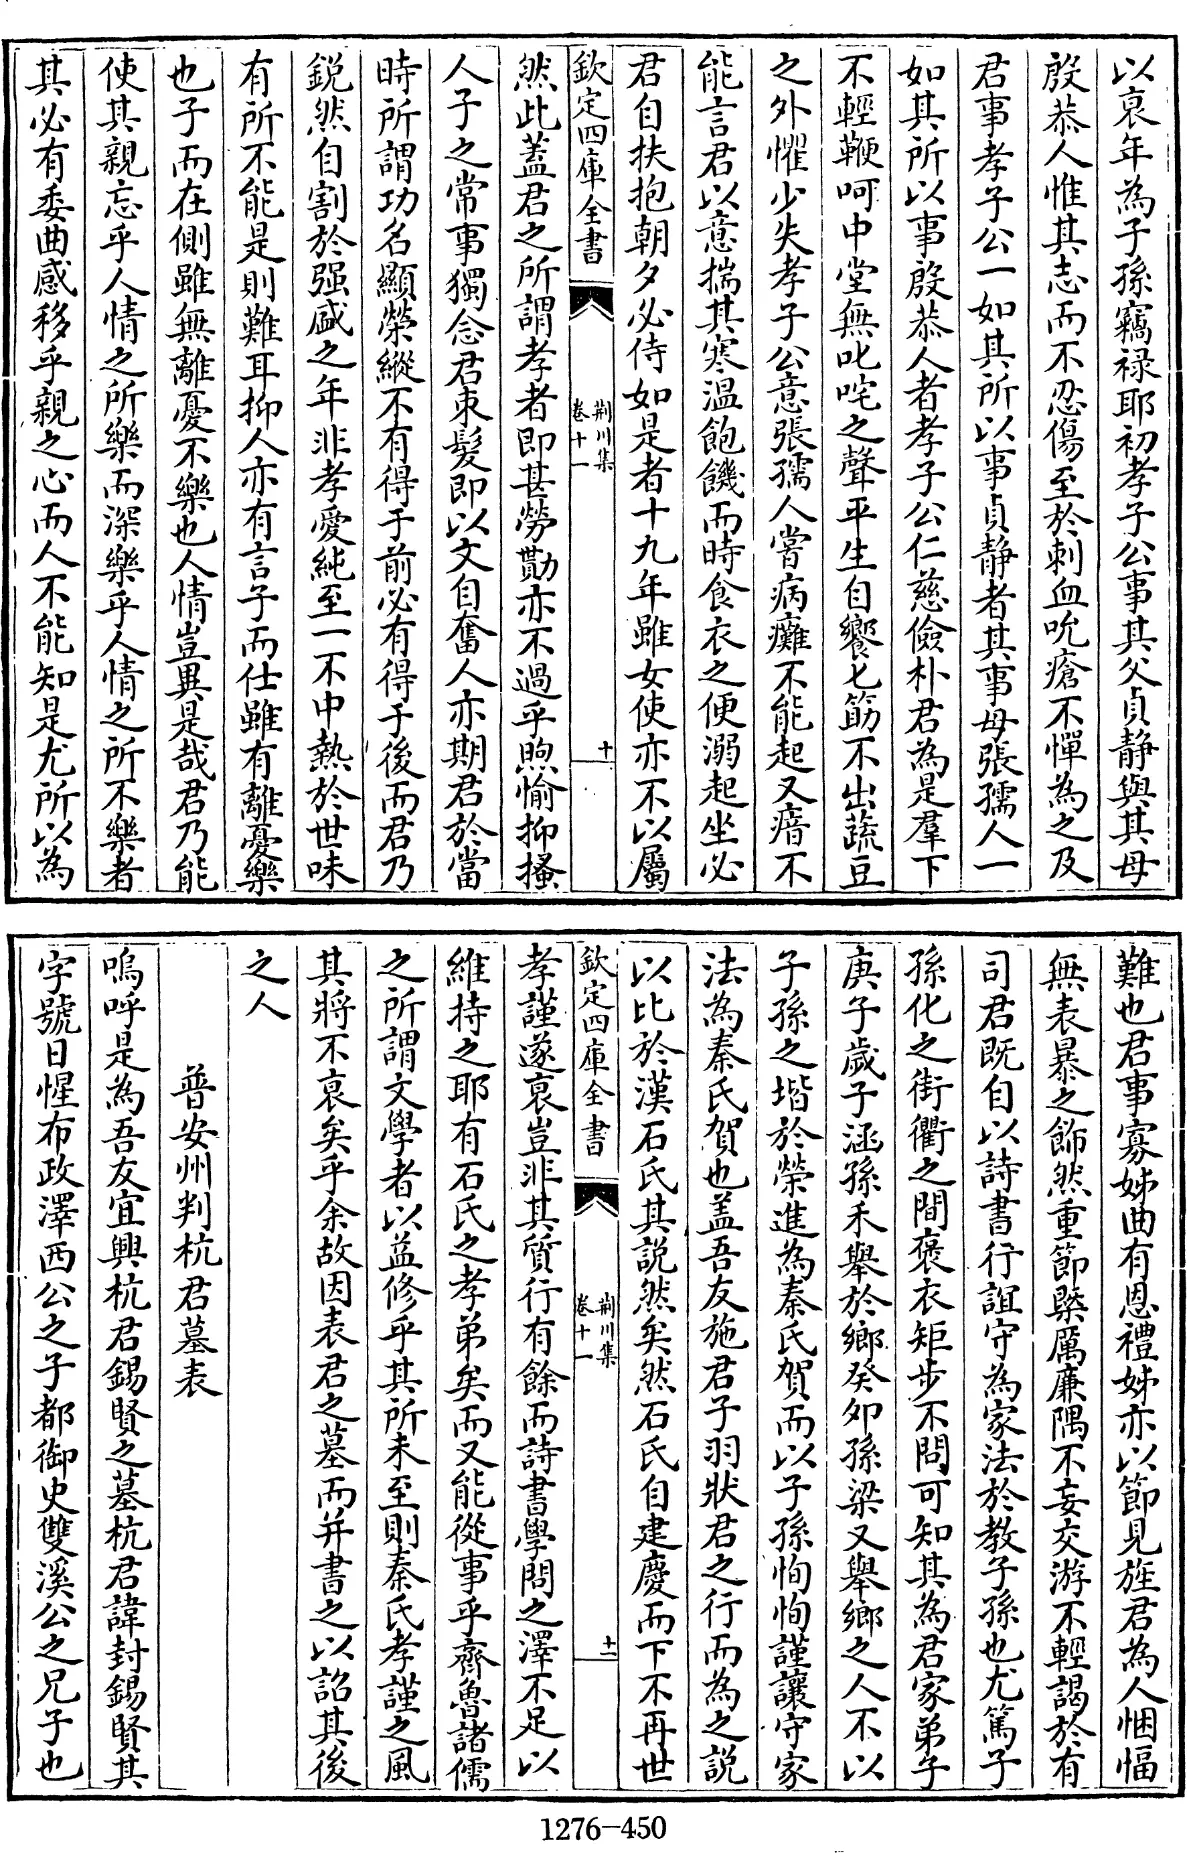 以衰年為子孫竊禄耶初孝子公事其父貞静與其母
殷恭人惟其志而不忍傷至於刺血吮瘡不憚為之及
君事孝子公一如其所以事貞静者其事母張孺人一
如其所以事殷恭人者孝子公仁慈儉朴君為是羣下
不輕鞭呵中堂無叱咤之聲平生自饗匕筯不出蔬豆
之外懼少失孝子公意張孺人嘗病癱不能起又瘖不
能言君以意揣其寒温飽饑而時食衣之便溺起坐必
君自扶抱朝夕必侍如是者十九年雖女使亦不以屬
欽定四庫全書
荆川集
卷十一
十
然此蓋君之所謂孝者即甚勞勩亦不過乎煦愉抑搔
人子之常事獨念君朿髮即以文自奮人亦期君於當
時所謂功名顯榮縱不有得于前必有得于後而君乃
鋭然自割於强盛之年非孝愛純至一不中熱於世味
有所不能是則難耳抑人亦有言子而仕雖有離憂樂
也子而在側雖無離憂不樂也人情豈異是哉君乃能
使其親忘乎人情之所樂而深樂乎人情之所不樂者
其必有委曲感移乎親之心而人不能知是尤所以為
難也君事寡姊曲有恩禮姊亦以節見旌君為人悃愊
無表暴之飾然重節槩厲廉隅不妄交游不輕謁於有
司君既自以詩書行誼守為家法於教子孫也尤篤子
孫化之街衢之間褒衣矩步不問可知其為君家弟子
庚子歲子涵孫禾舉於鄉癸夘孫梁又舉鄉之人不以
子孫之堦於榮進為秦氏賀而以子孫恂恂謹讓守家
法為秦氏賀也蓋吾友施君子羽狀君之行而為之説
以比於漢石氏其説然矣然石氏自建慶而下不再世
欽定四庫全書
荆川集
卷十一
十一
孝謹遂衰豈非其質行有餘而詩書學問之澤不足以
維持之耶有石氏之孝弟矣而又能從事乎齊魯諸儒
之所謂文學者以益修乎其所未至則秦氏孝謹之風
其將不衰矣乎余故因表君之墓而并書之以詔其後
之人
普安州判杭君墓表
嗚呼是為吾友宜興杭君錫賢之墓杭君諱封錫賢其
字號曰惺布政澤西公之子都御史雙溪公之兄子也
1276-450